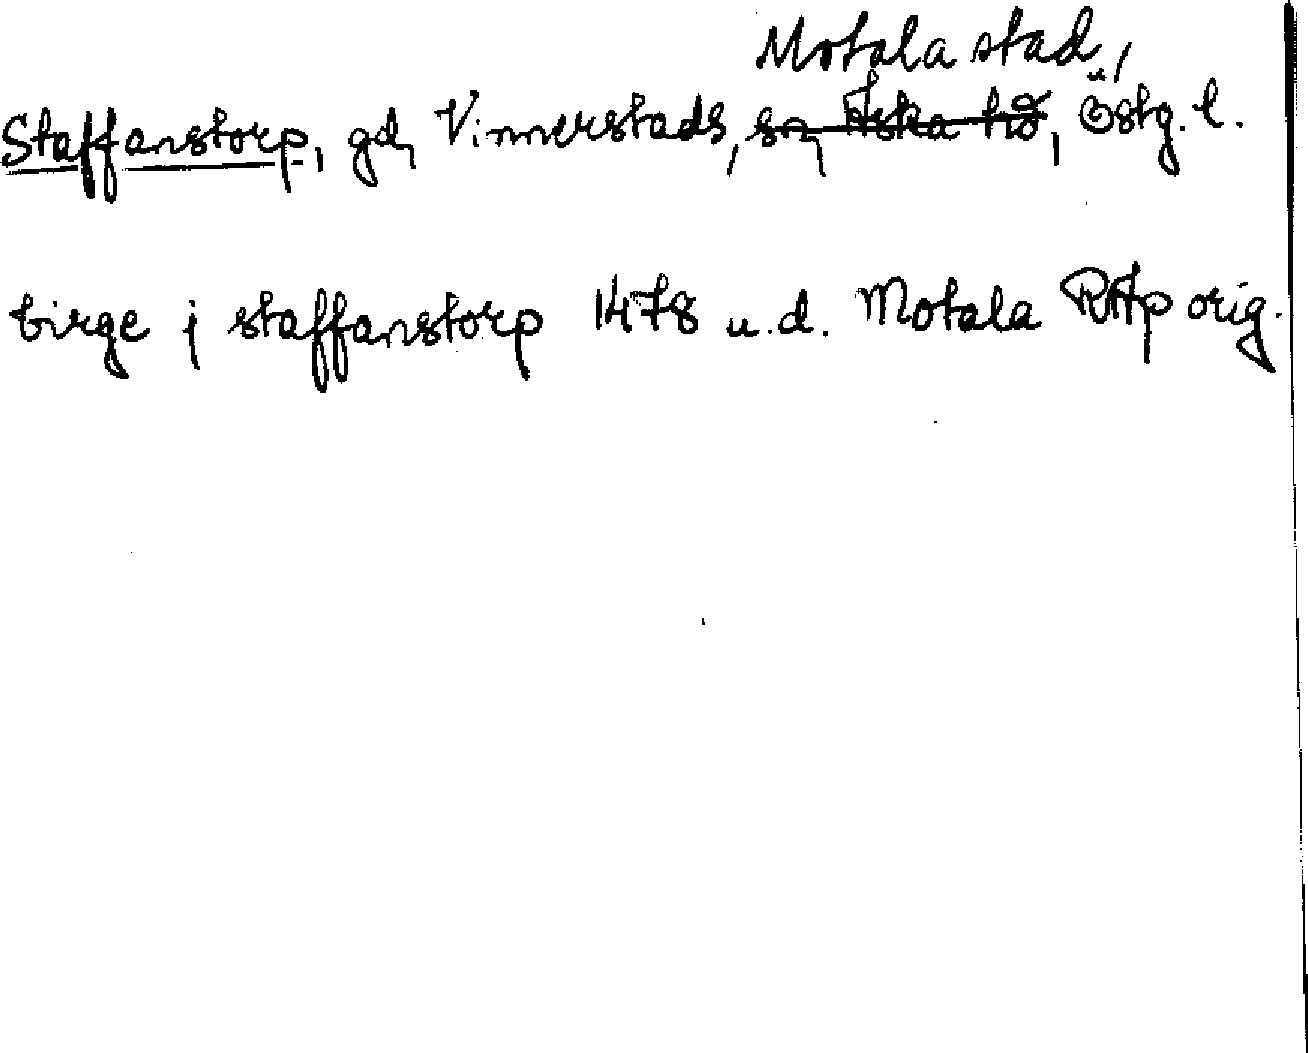 Motala stad,
Staffanstorp, gd, Vinnerstads, sn, Aska hd, Östg. l.
birge j staffanstorp 1478 u.d. Motala RAp orig.